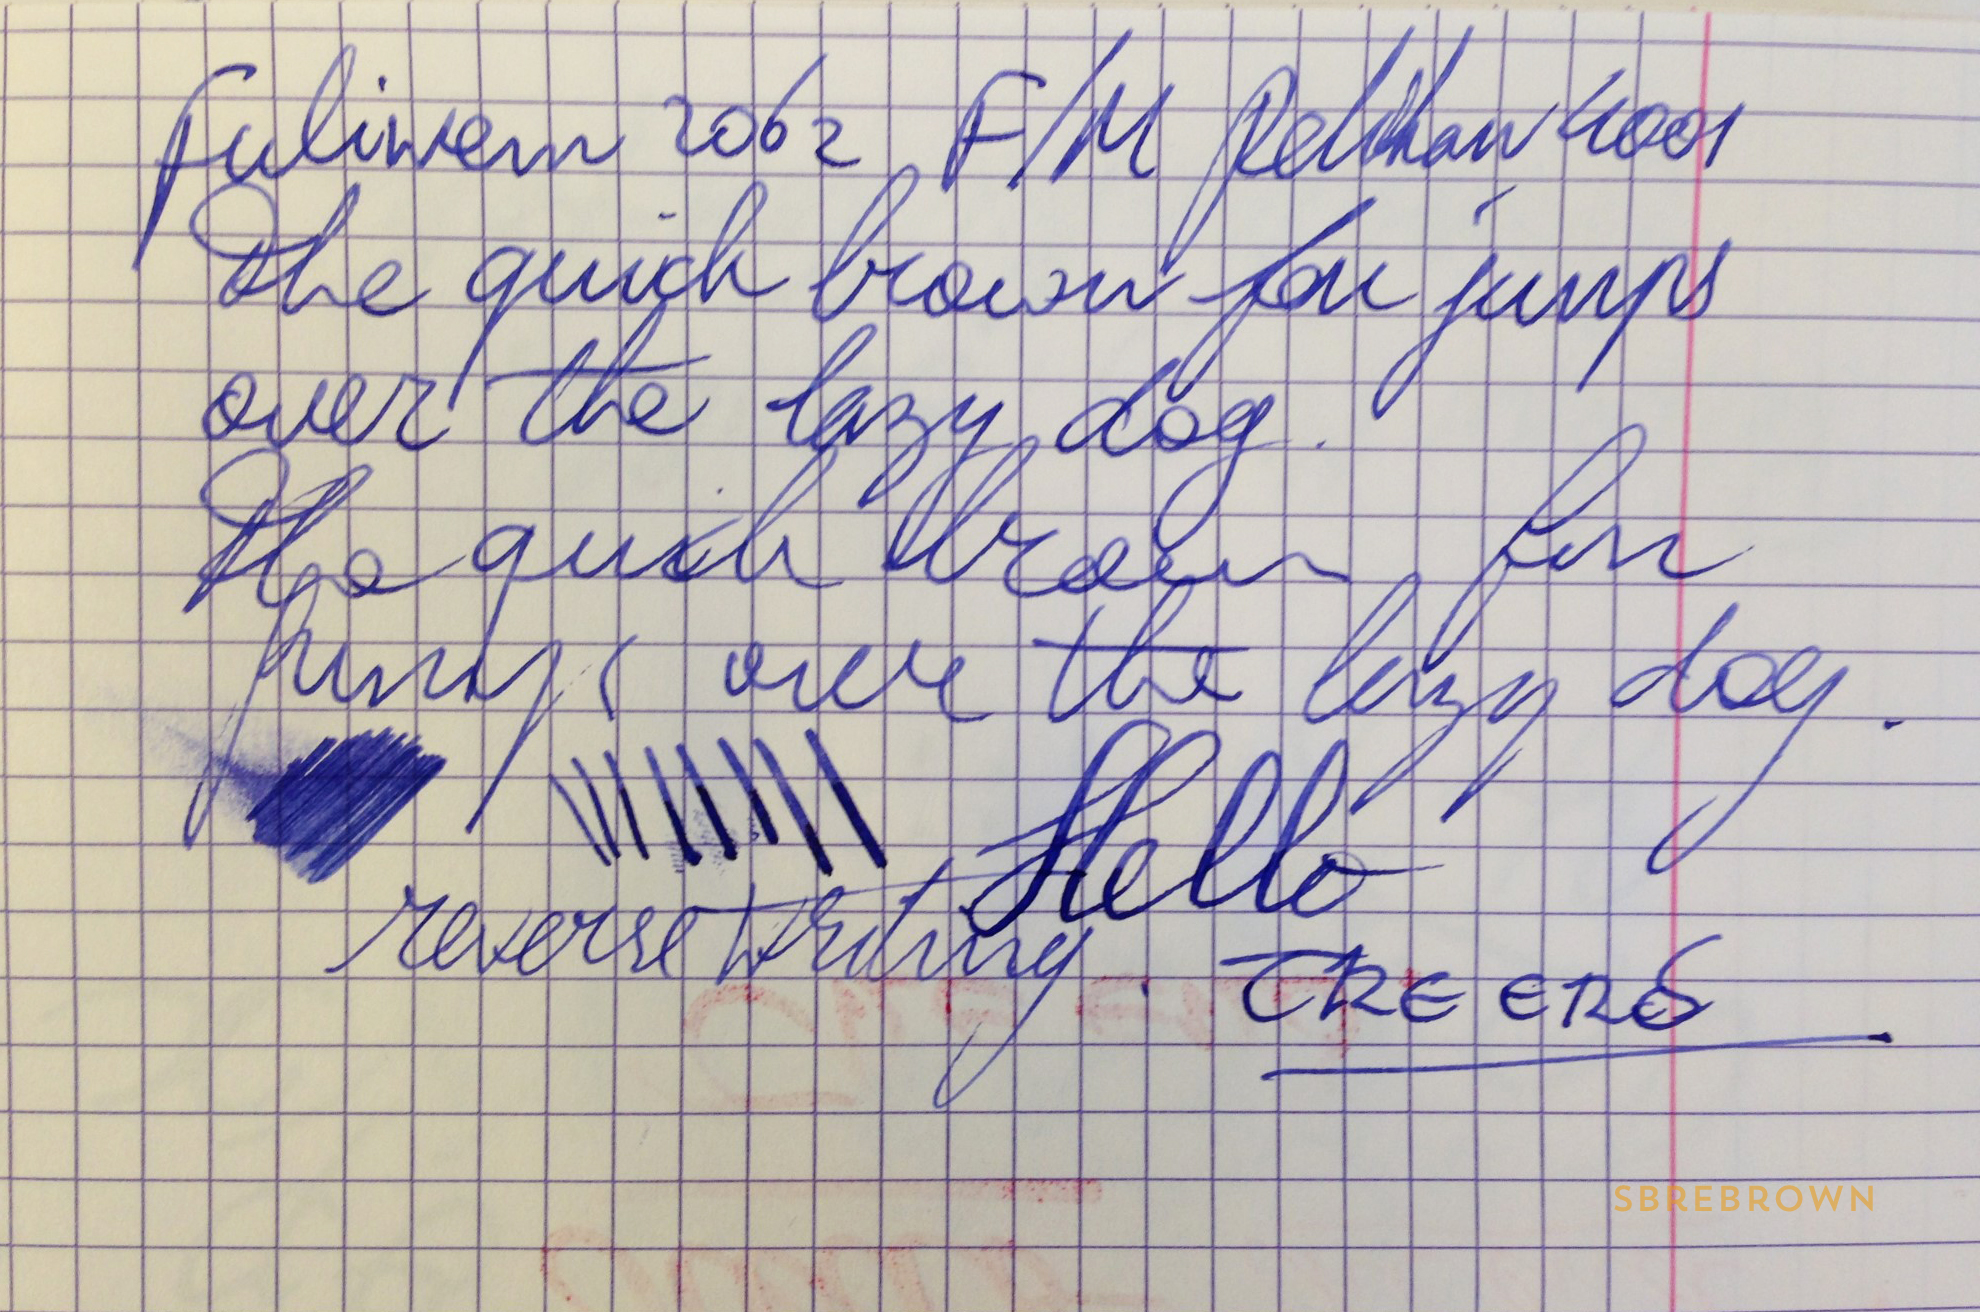 Fuliwen 2062 F/M Pelikan 4001
The quick brown fox jumps
over the lazy dog.
The quick brown fox
jumps over the lazy dog.
Hello
reverse writing.
CHEERS
SBREBROWN